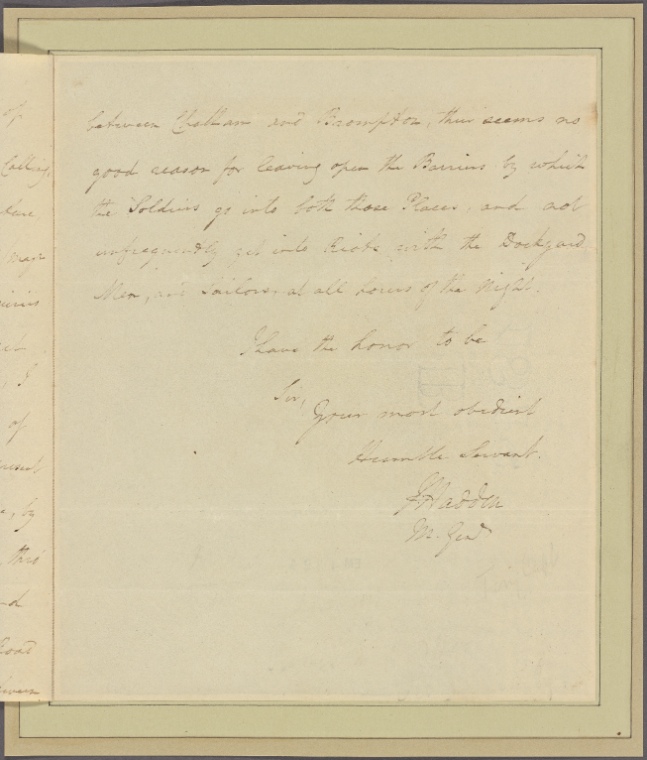 between Chatham and Brompton, their seems no
good reason for leaving open the Barriers by which
the Soldiers go into both those Places, and not
unfrequently get into Riots with the Dockyard
Men, and Sailors at all hours of the Night.
I have the honor to be
Sir,
Your most obedient
Humble Servant.
J Hadden
M. Genl
of
Calling
have
I
of
by
this
Road